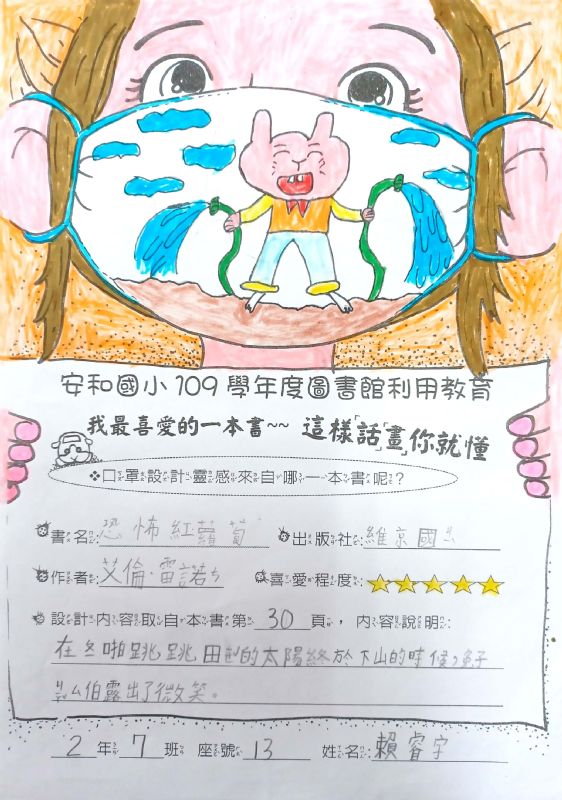 安和國小109學年度圖書館利用教育
我最喜愛的一本書~~ 這樣「話」「畫」你就懂
❖口罩設計靈感來自哪一本書呢?
書名:恐怖紅蘿蔔 出版社:維京國ㄐ
作者:艾倫·雷諾ㄅ 喜愛程度:
設計內容取自本書第30頁,內容說明:
在 啪跳跳田 的太陽終於下山的時候,兔子
ㄙ伯露出了微笑。
2年7班 座號13 姓名:賴睿宇